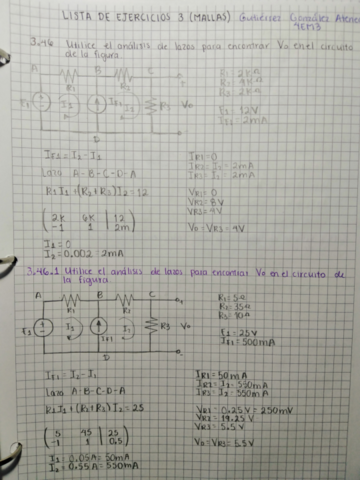 LISTA DE EJERCICIOS 3 (MALLAS) Gutiérrez González
4EM3
3.46 Utilice el análisis de lazos para encontrar Vo en el circuito
de la figura.
A B C
R1 R2
R1: 2KΩ
R2: 4KΩ
R3: 2KΩ
E1 I1 IF1 I2 R3 Vo
E1: 12V
IF1: 2mA
D
IF1 = I2 - I1
Lazo A-B-C-D-A
R1I1 + (R2+R3)I2 = 12
2K 6K 12
-1 1 2m
I1 = 0
I2 = 0.002 2mA
IR1 = 0
IR2 = I2 = 2mA
IR3 = I2 = 2mA
VR1 = 0
VR2 = 8V
VR3 = 4V
Vo = VR3 = 4V
3.46.1 Utilice el análisis de lazos para encontrar Vo en el circuito de
la figura.
A B C
R1 R2
R1: 5Ω
R2: 35Ω
R3: 10Ω
E1 I1 IF1 I2 R3 Vo
E1: 25V
IF1: 500mA
D
IF1 = I2 - I1
Lazo A-B-C-D-A
R1I1 + (R2+R3)I2 = 25
5 45 25
-1 1 0.5
I1 = 0.05A = 50mA
I2 = 0.55A = 550mA
IR1 = 50mA
IR2 = I2 = 550mA
IR3 = I2 = 550mA
VR1 = 0.25V = 250mV
VR2 = 19.25V
VR3 = 5.5V
Vo = VR3 = 5.5V